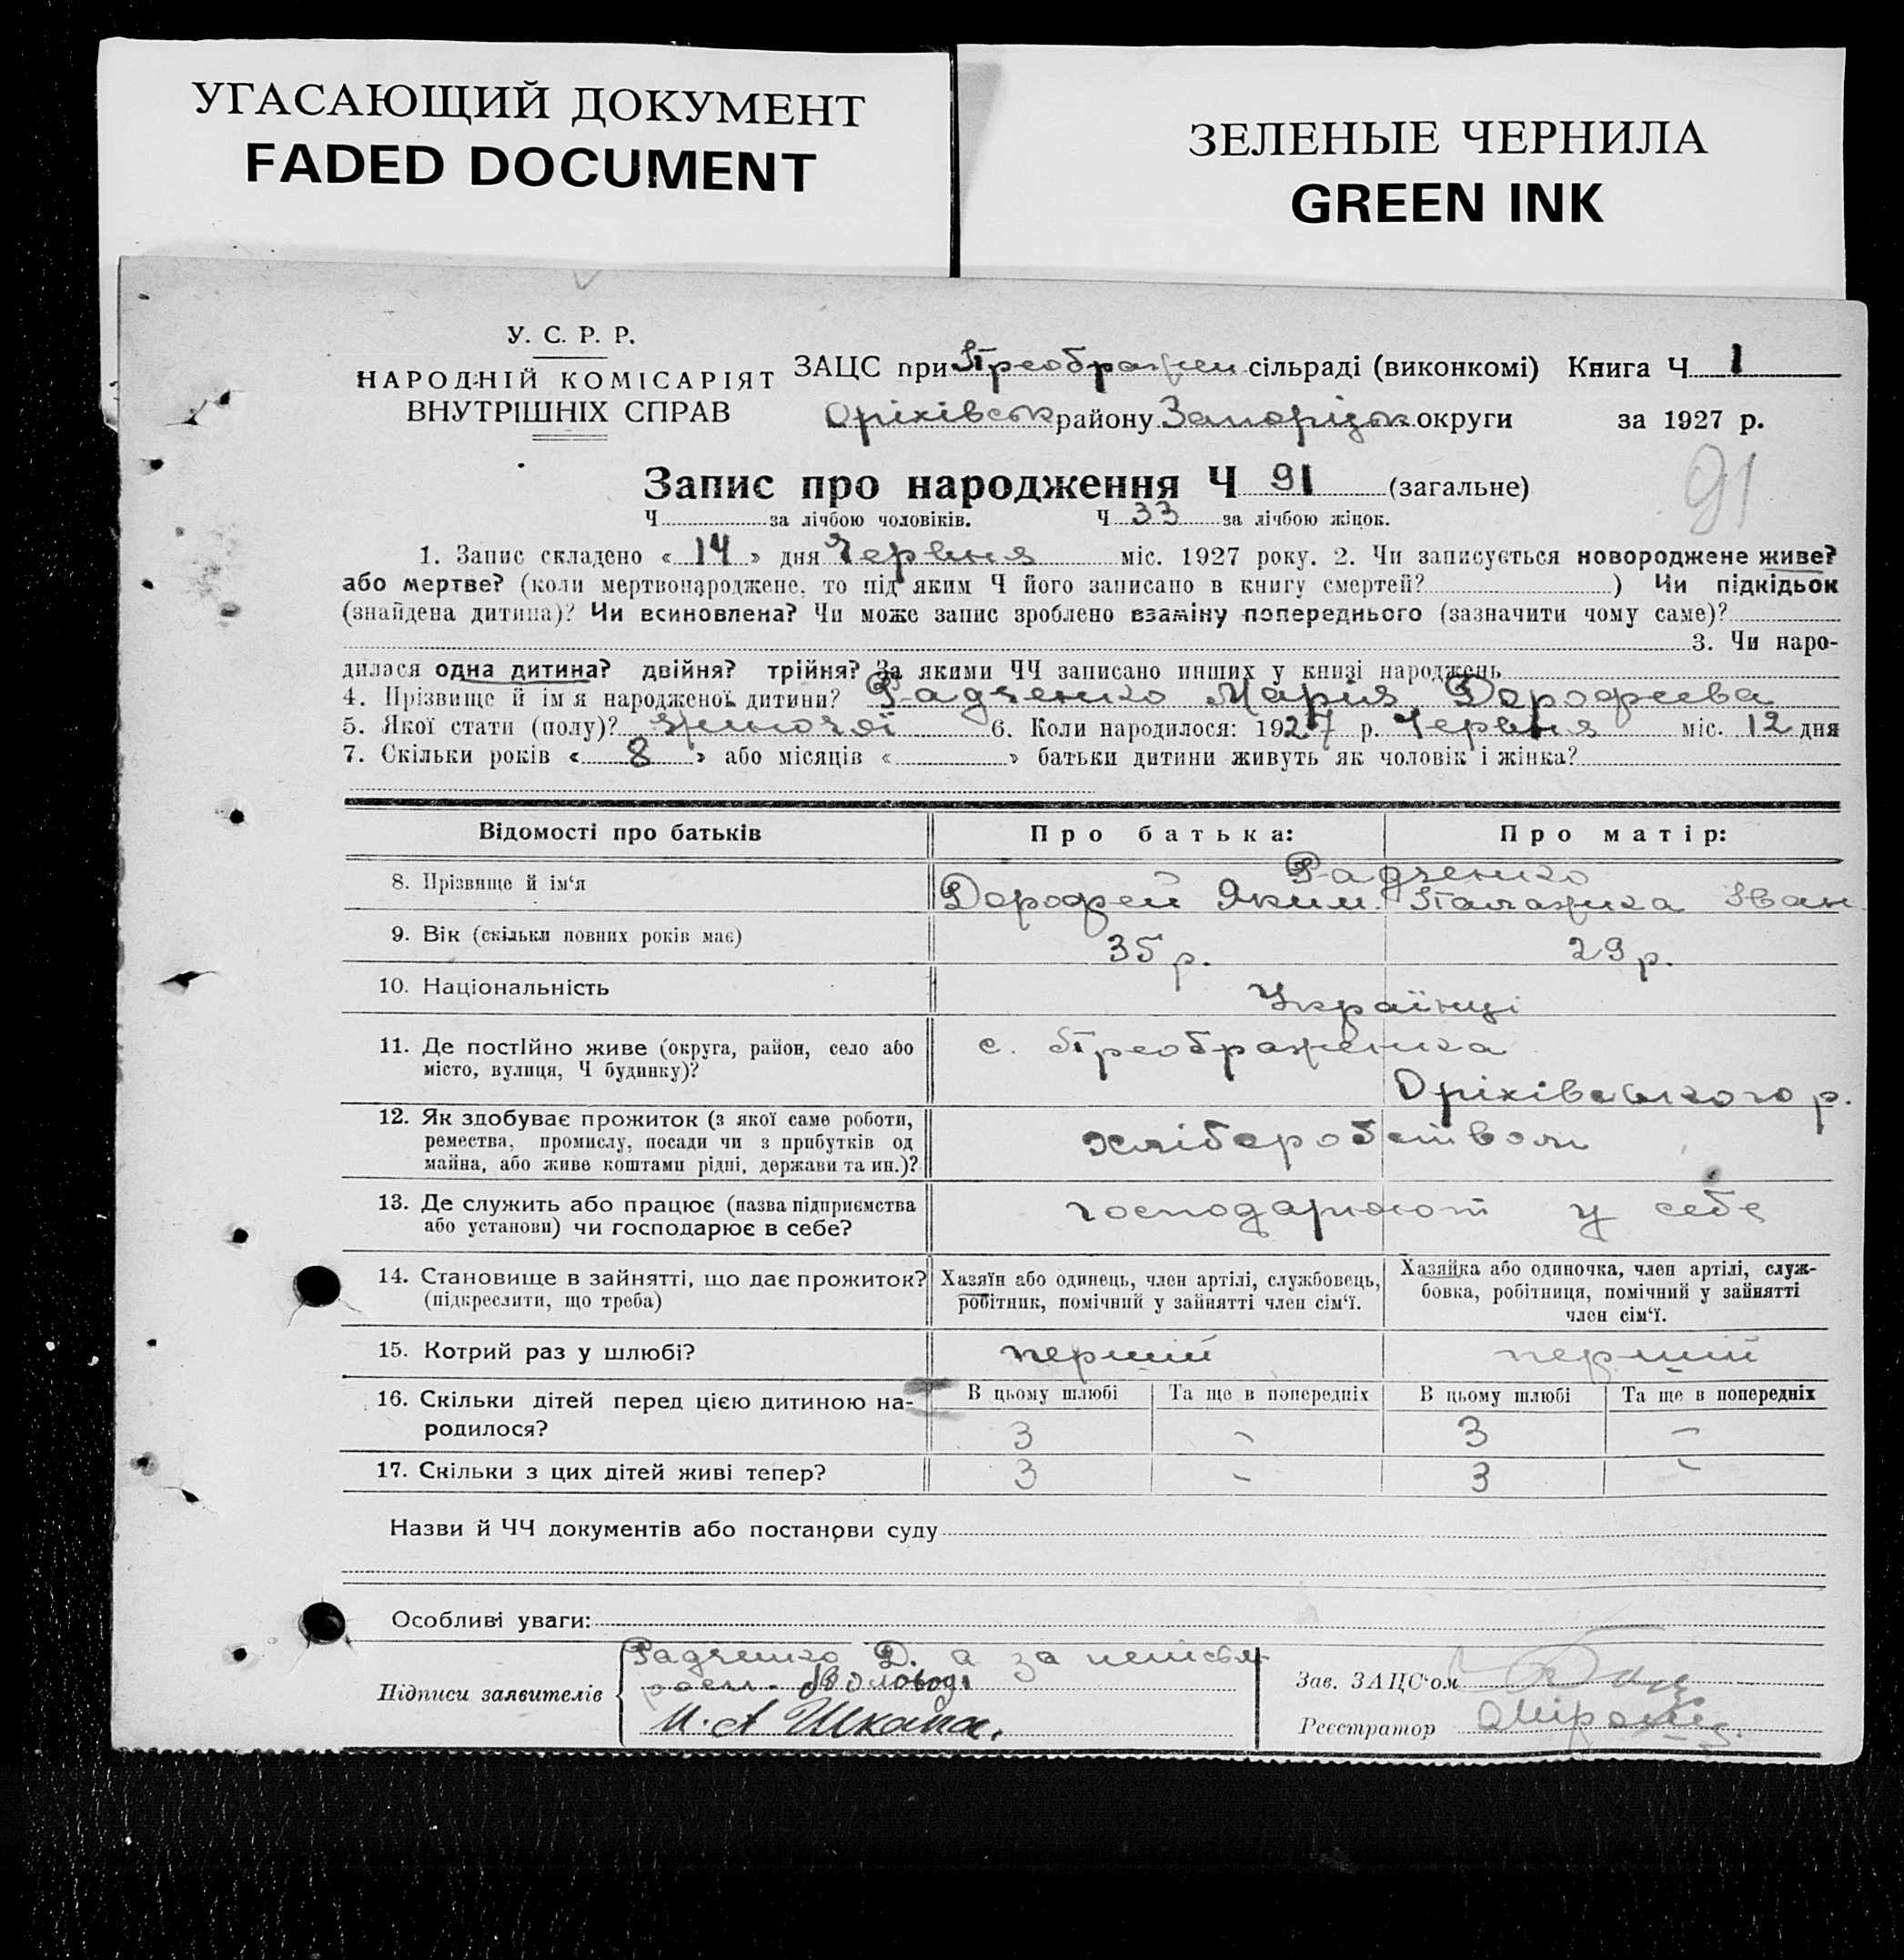 УГАСАЮЩИЙ ДОКУМЕНТ
FADED DOCUMENT
ЗЕЛЕНЫЕ ЧЕРНИЛА
GREEN INK
У. С. Р. Р.
НАРОДНІЙ КОМІСАРІЯТ
ВНУТРІШНІХ СПРАВ
ЗАЦС при Преображен сільраді (виконкомі) Книга Ч 1
Оріхівськ району Запорізьк округи за 1927 р.
Запис про народження Ч 91 (загальне)
91
Ч за лічбою чоловіків. Ч 33 за лічбою жінок.
1. Запис складено « 14 » дня Червня міс. 1927 року. 2. Чи записується новороджене живе?
або мертве? (коли мертвонароджене, то під яким Ч його записано в книгу смертей? ) Чи підкідьок
(знайдена дитина)? Чи всиновлена? Чи може запис зроблено взаміну попереднього (зазначити чому саме)?
3. Чи наро-
дилася одна дитина? двійня? трійня? За якими ЧЧ записано инших у книзі народжень
4. Прізвище й ім'я народженої дитини? Радченко Марія Дорофеева
5. Якої стати (полу)? жиночої 6. Коли народилося: 1927 р. Червня міс. 12 дня
7. Скільки років « 8 » або місяців « » батьки дитини живуть як чоловік і жінка?
Відомості про батьків Про батька: Про матір:
8. Прізвище й ім'я Радченко
Дорофей Яким. Палажка Іван
9. Вік (скільки повних років має) 35 р. 29 р.
10. Національність Українці
11. Де постійно живе (округа, район, село або с. Преображенка
місто, вулиця, Ч будинку)? Оріхівського р.
12. Як здобуває прожиток (з якої саме роботи,
ремества, промислу, посади чи з прибутків од хліборобством
майна, або живе коштами рідні, держави та ин.)?
13. Де служить або працює (назва підприємства господарюют у себе
або установи) чи господарює в себе?
14. Становище в зайнятті, що дає прожиток? Хазяїн або одинець, член артілі, службовець, Хазяйка або одиночка, член артілі, служ-
(підкреслити, що треба) робітник, помічний у зайнятті член сім'ї. бовка, робітниця, помічний у зайнятті
член сім'ї.
15. Котрий раз у шлюбі? перший перший
16. Скільки дітей перед цією дитиною на- В цьому шлюбі Та ще в попередніх В цьому шлюбі Та ще в попередніх
родилося? 3 - 3 -
17. Скільки з цих дітей живі тепер? 3 - 3 -
Назви й ЧЧ документів або постанови суду
Особливі уваги:
Радченко Д. а за неписьм
Підписи заявителів росп.
И. А Шкапа.
Зав. ЗАЦС'ом
Реєстратор